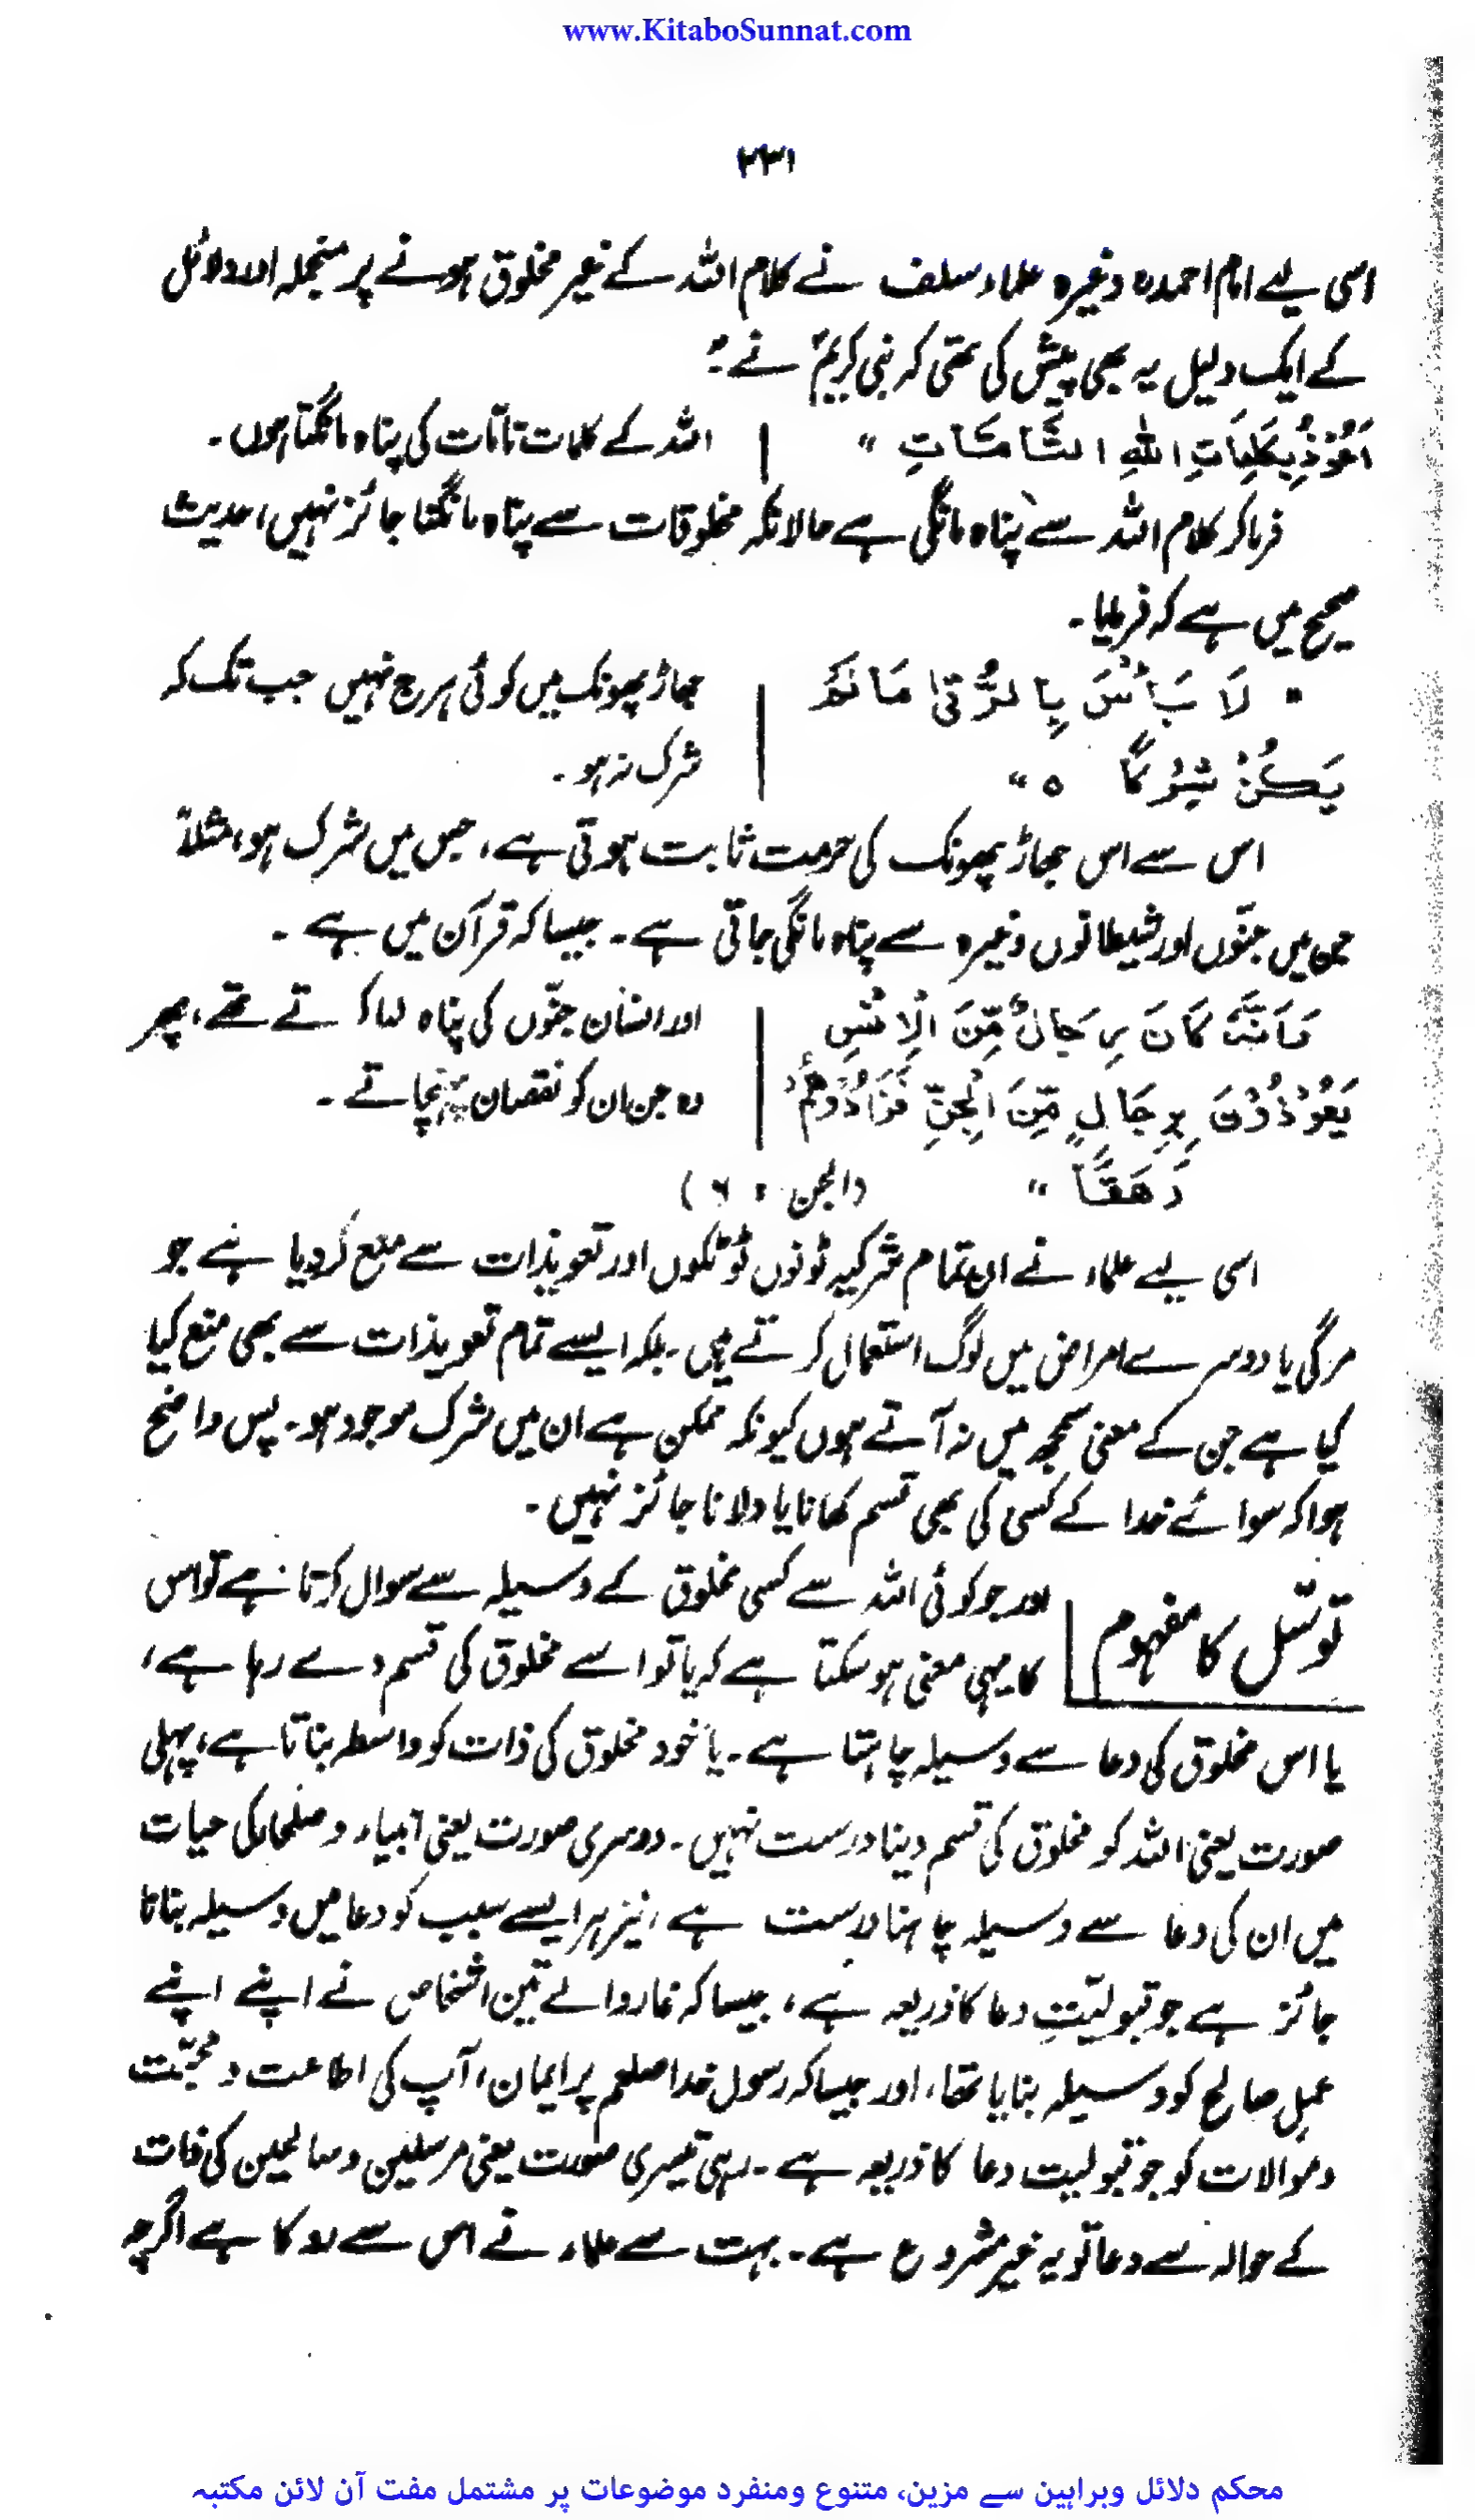 www.KitaboSunnat.com
۲۳۱
اسی لیے امام احمدؒ وغیرہ علماء سلف نے کلام اللہ کے غیر مخلوق ہونے پر منجملہ اور دلائل
کے ایک دلیل یہ بھی پیش کی تھی کہ نبی کریمؐ نے :
اَعُوْذُ بِكَلِمَاتِ اللهِ التَّامَّاتِ " | اللہ کے کلمات تامات کی پناہ مانگتا ہوں۔
فرما کر کلام اللہ سے پناہ مانگی ہے حالانکہ مخلوقات سے پناہ مانگنا جائز نہیں، حدیث
صحیح میں ہے کہ فرمایا۔
" لَا بَأْسَ بِالرُّقىٰ مَا لَمْ | جھاڑ پھونک میں کوئی ہرج نہیں جب تک کہ
يَكُنْ شِرْكًا ہ " | شرک نہ ہو۔
اس سے اس جھاڑ پھونک کی حرمت ثابت ہوتی ہے، جس میں شرک ہو، مثلاً
جن میں جنّوں اور شیطانوں وغیرہ سے پناہ مانگی جاتی ہے۔ جیسا کہ قرآن میں ہے۔
وَاَنَّهٗ كَانَ رِجَالٌ مِّنَ الْاِنْسِ | اور انسان جنّوں کی پناہ لیا کرتے تھے، پھر
يَعُوْذُوْنَ بِرِجَالٍ مِّنَ الْجِنِّ فَزَادُوْهُمْ | وہ جن ان کو نقصان پہنچاتے۔
رَهَقًا " (الجن : ۶)
اسی لیے علماء نے ان تمام شرکیہ ٹونوں ٹوٹکوں اور تعویذات سے منع کر دیا ہے جو
مرگی یا دوسرے امراض میں لوگ استعمال کرتے ہیں۔ بلکہ ایسے تمام تعویذات سے بھی منع کیا
گیا ہے جن کے معنی سمجھ میں نہ آتے ہوں کیونکہ ممکن ہے ان میں شرک موجود ہو۔ پس واضح
ہوا کہ سوائے خدا کے کسی کی بھی قسم کھانا یا دلانا جائز نہیں۔
توسّل کا مفہوم
اور جو کوئی اللہ سے کسی مخلوق کے وسیلہ سے سوال کرتا ہے تو اس
کا یہی معنی ہو سکتا ہے کہ یا تو اسے مخلوق کی قسم دے رہا ہے،
یا اس مخلوق کی دعا سے وسیلہ چاہتا ہے۔ یا خود مخلوق کی ذات کو واسطہ بناتا ہے، پہلی
صورت یعنی اللہ کو مخلوق کی قسم دینا درست نہیں۔ دوسری صورت یعنی انبیاء و صلحاء کی حیات
میں ان کی دعا سے وسیلہ چاہنا درست ہے، نیز ہر ایسے سبب کو دعا میں وسیلہ بنانا
جائز ہے جو قبولیتِ دعا کا ذریعہ ہے، جیسا کہ غار والے تین اشخاص نے اپنے اپنے
عملِ صالح کو وسیلہ بنایا تھا، اور جیسا کہ رسول خدا صلعم پر ایمان، آپ کی اطاعت و محبّت
و موالات کو جو قبولیت دعا کا ذریعہ ہے۔ رہی تیسری صورت یعنی مرسلین و صالحین کی ذات
کے حوالہ سے دعا تو یہ غیر مشروع ہے۔ بہت سے علماء نے اس سے روکا ہے اگرچہ
محکم دلائل وبراہین سے مزین، متنوع ومنفرد موضوعات پر مشتمل مفت آن لائن مکتبہ